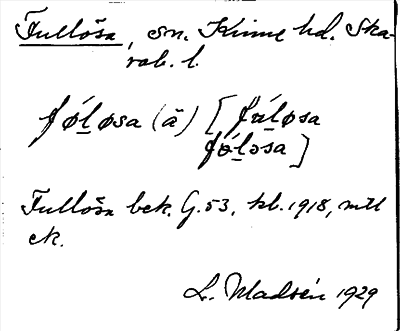 Fullösa, sn. Kinne hd. Ska-
rab. l.
fǿl̲øsa (ä) [fú̈l̲øsa
fǿl̲əsa]
Fullösa bek. G. 53, kb. 1918, mtl
ek.
L. Madsén 1929